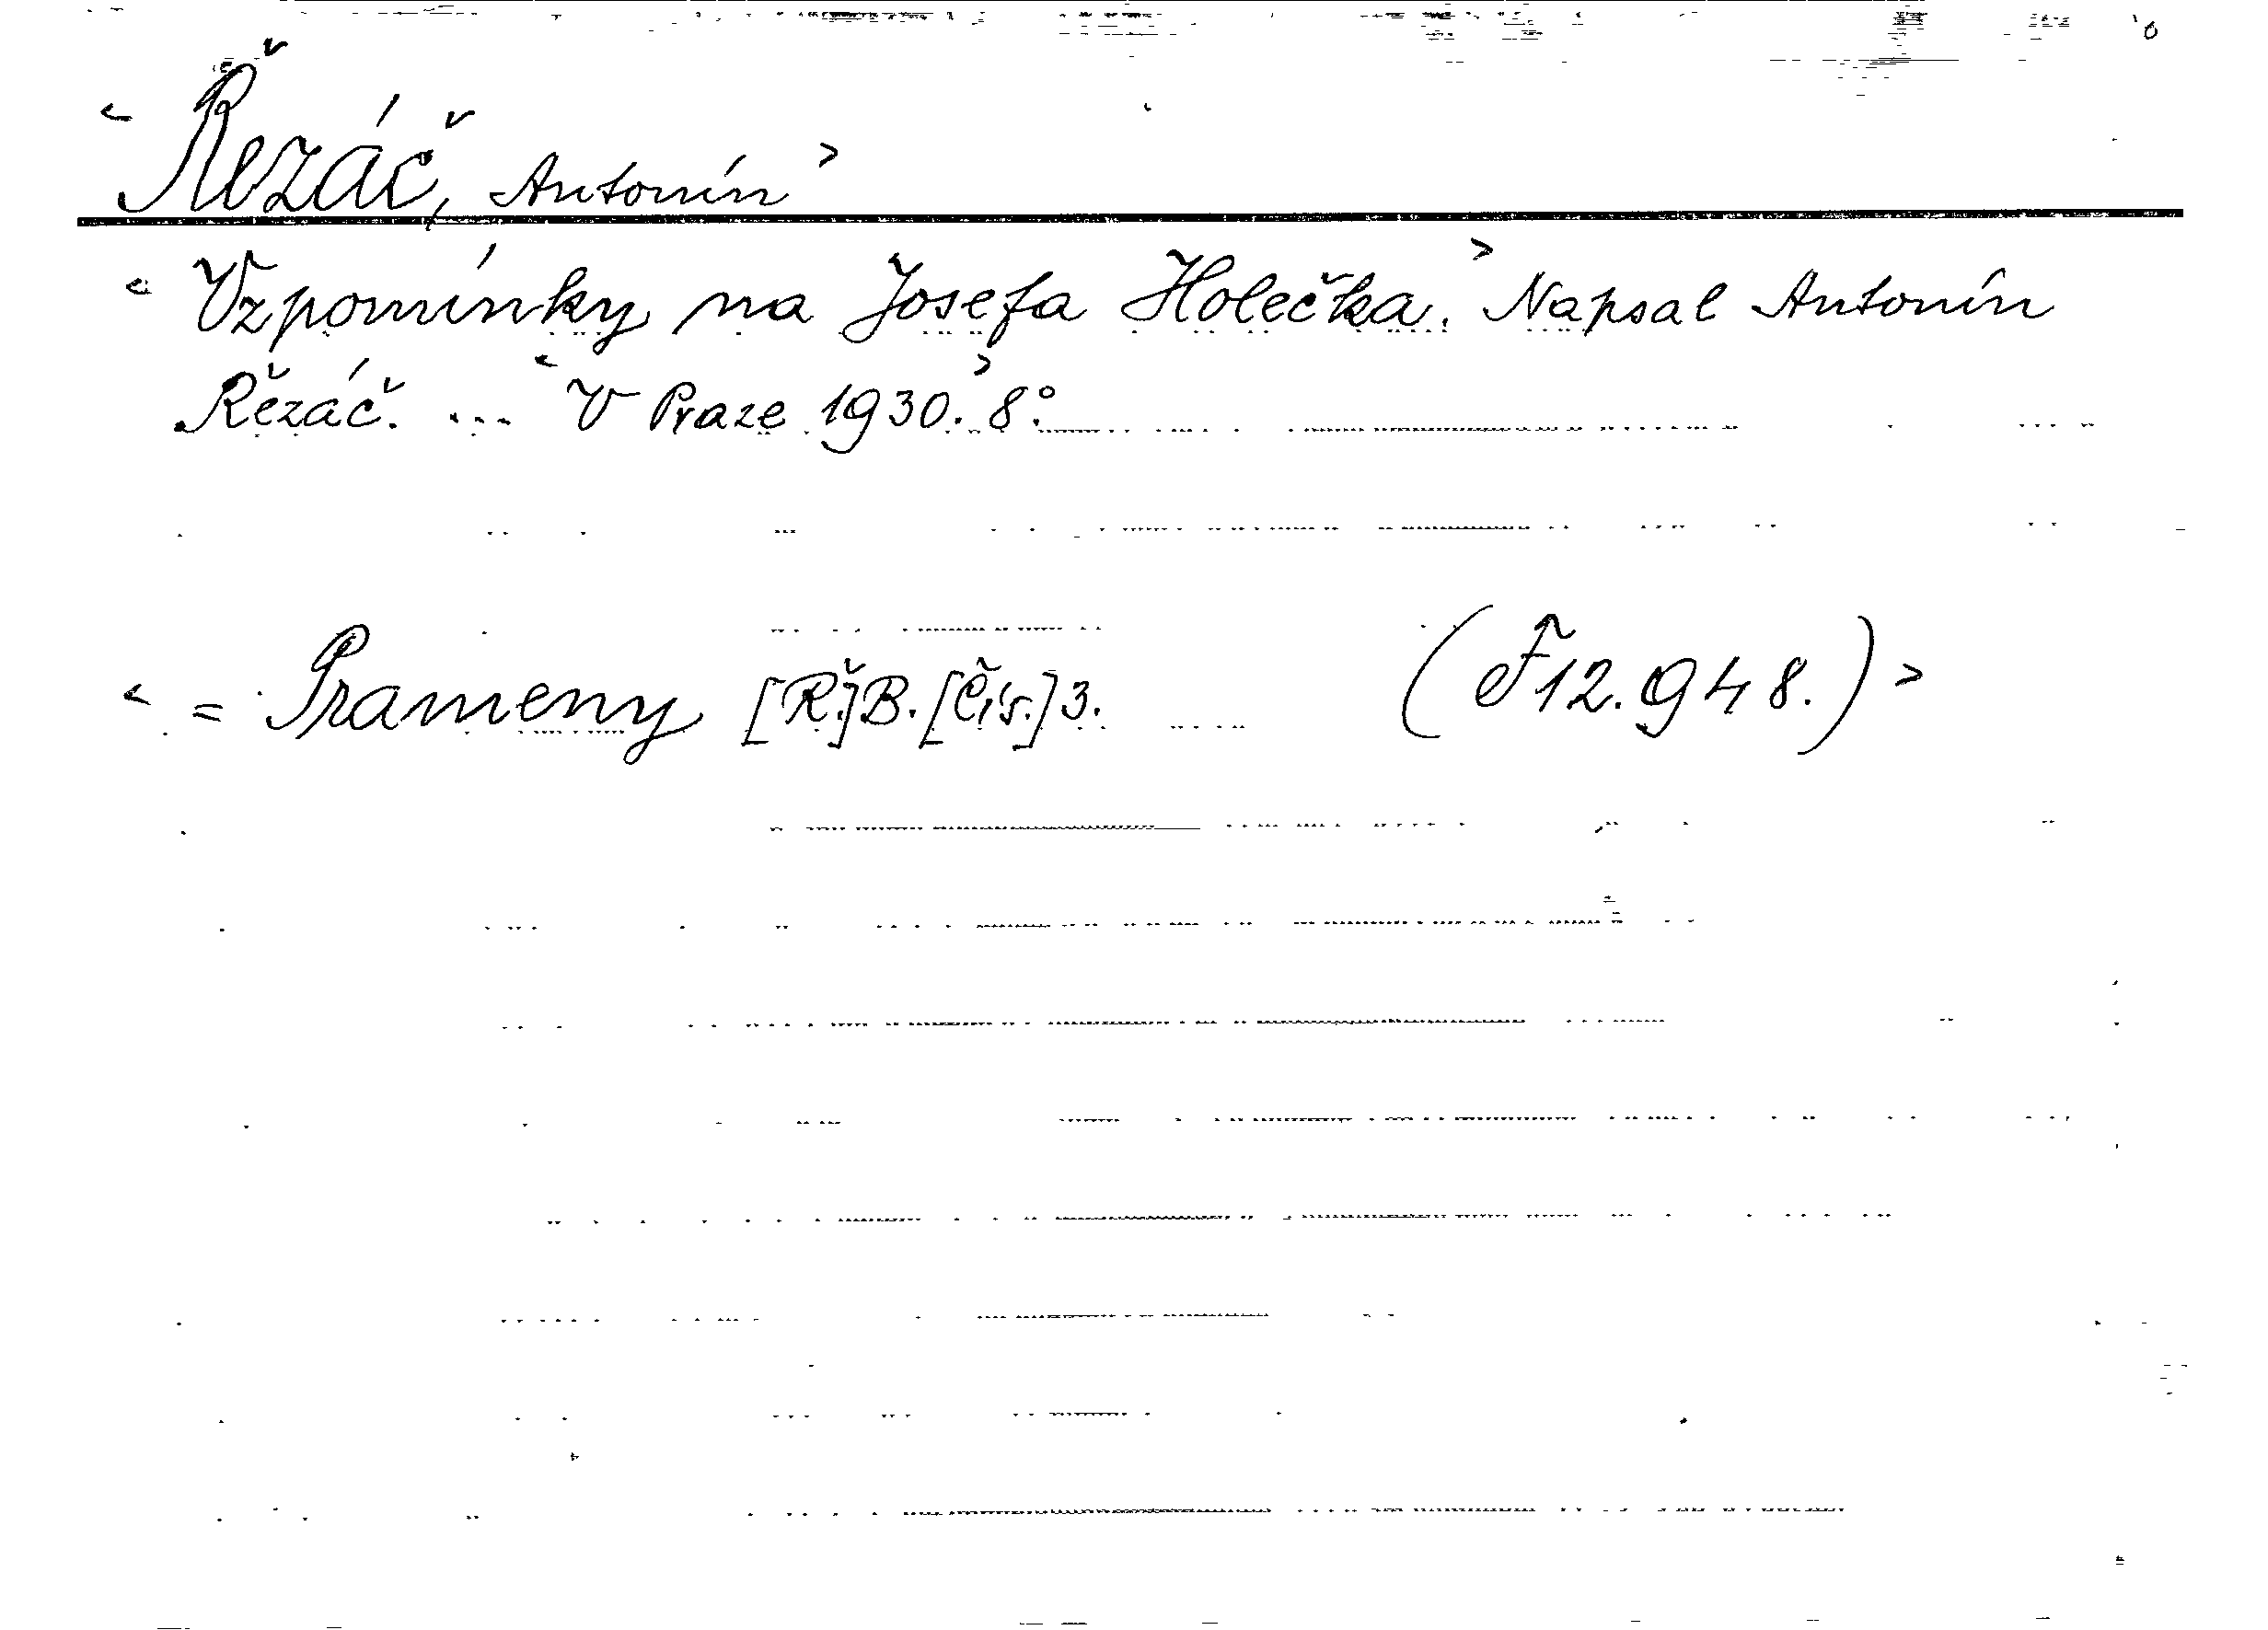 < Řezáč, Antonín >
< Vzpomínky na Josefa Holečka. > Napsal Antonín
Řezáč. ... < V Praze 1930. > 8°.
< = Prameny [Ř.] B. [Čís.] 3. (F 12.948.) >